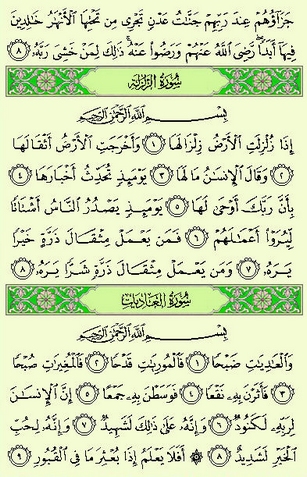 جَزَآؤُهُمْ عِندَ رَبِّهِمْ جَنَّـٰتُ عَدْنٍ تَجْرِى مِن تَحْتِهَا ٱلْأَنْهَـٰرُ خَـٰلِدِينَ
فِيهَآ أَبَدًا ۖ رَّضِىَ ٱللَّهُ عَنْهُمْ وَرَضُوا۟ عَنْهُ ۚ ذَٰلِكَ لِمَنْ خَشِىَ رَبَّهُۥ ٨
سُورَةُ الزَّلْزَلَةِ
بِسْمِ ٱللَّهِ ٱلرَّحْمَـٰنِ ٱلرَّحِيمِ
إِذَا زُلْزِلَتِ ٱلْأَرْضُ زِلْزَالَهَا ١ وَأَخْرَجَتِ ٱلْأَرْضُ أَثْقَالَهَا
٢ وَقَالَ ٱلْإِنسَـٰنُ مَا لَهَا ٣ يَوْمَئِذٍ تُحَدِّثُ أَخْبَارَهَا ٤
بِأَنَّ رَبَّكَ أَوْحَىٰ لَهَا ٥ يَوْمَئِذٍ يَصْدُرُ ٱلنَّاسُ أَشْتَاتًا
لِّيُرَوْا۟ أَعْمَـٰلَهُمْ ٦ فَمَن يَعْمَلْ مِثْقَالَ ذَرَّةٍ خَيْرًا
يَرَهُۥ ٧ وَمَن يَعْمَلْ مِثْقَالَ ذَرَّةٍ شَرًّا يَرَهُۥ ٨
سُورَةُ العَادِيَاتِ
بِسْمِ ٱللَّهِ ٱلرَّحْمَـٰنِ ٱلرَّحِيمِ
وَٱلْعَـٰدِيَـٰتِ ضَبْحًا ١ فَٱلْمُورِيَـٰتِ قَدْحًا ٢ فَٱلْمُغِيرَٰتِ صُبْحًا
٣ فَأَثَرْنَ بِهِۦ نَقْعًا ٤ فَوَسَطْنَ بِهِۦ جَمْعًا ٥ إِنَّ ٱلْإِنسَـٰنَ
لِرَبِّهِۦ لَكَنُودٌ ٦ وَإِنَّهُۥ عَلَىٰ ذَٰلِكَ لَشَهِيدٌ ٧ وَإِنَّهُۥ لِحُبِّ
ٱلْخَيْرِ لَشَدِيدٌ ٨ ۞ أَفَلَا يَعْلَمُ إِذَا بُعْثِرَ مَا فِى ٱلْقُبُورِ ٩